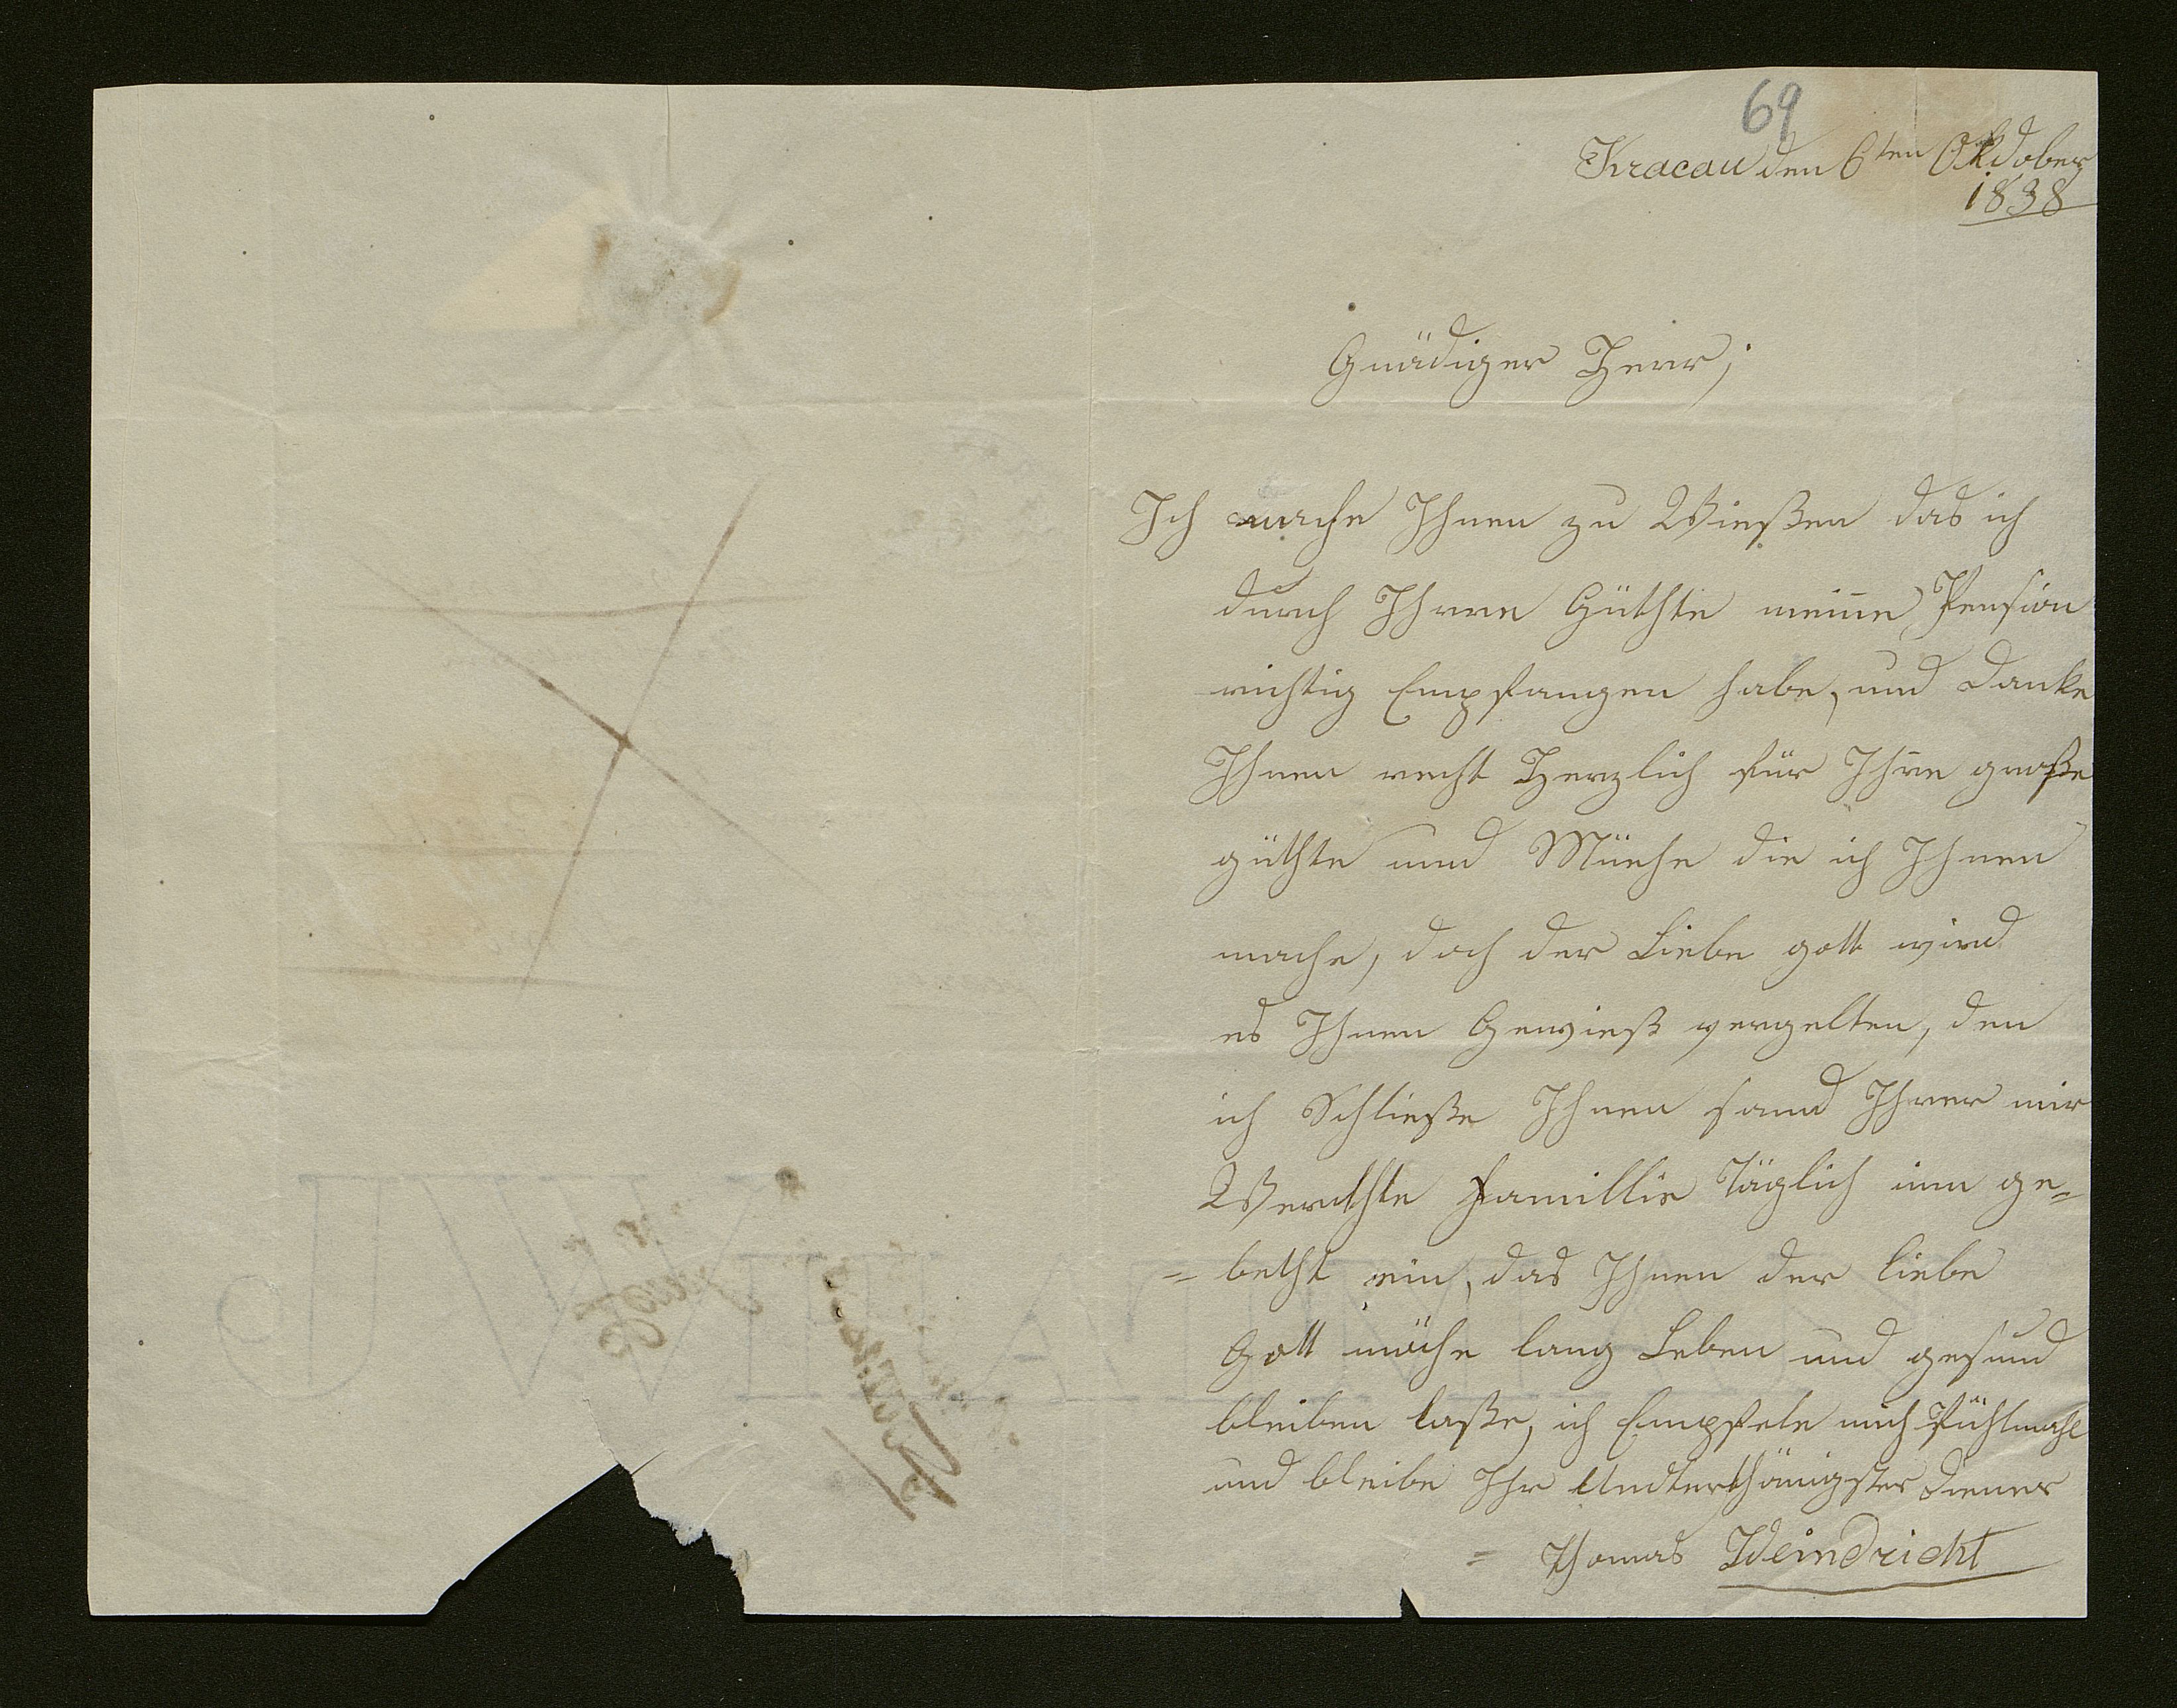 69
Kracau den 6ten Okdober
1838
Gnädiger Herr;
Ich mache Ihnen zu Wießen das ich
durch Ihrre Güthte meine Pension
richtig Empfangen habe, und Danke
Ihnen recht Herzlich für Ihre große
güthte und Müehe die ich Ihnen
mache, doch der Liebe gott wird
es Ihnen Gewieß vergelten, den
ich Schließe Ihnen samd Ihrer mir
Werthte Famillie Täglich inn ge=
=betht ein, das Ihnen der liebe
Gott möche lang Leben und gesund
bleiben laßte, ich Empfele mich fühlmahl
und bleibe Ihr Undterthänigster Diener
= Thomas Weindricht